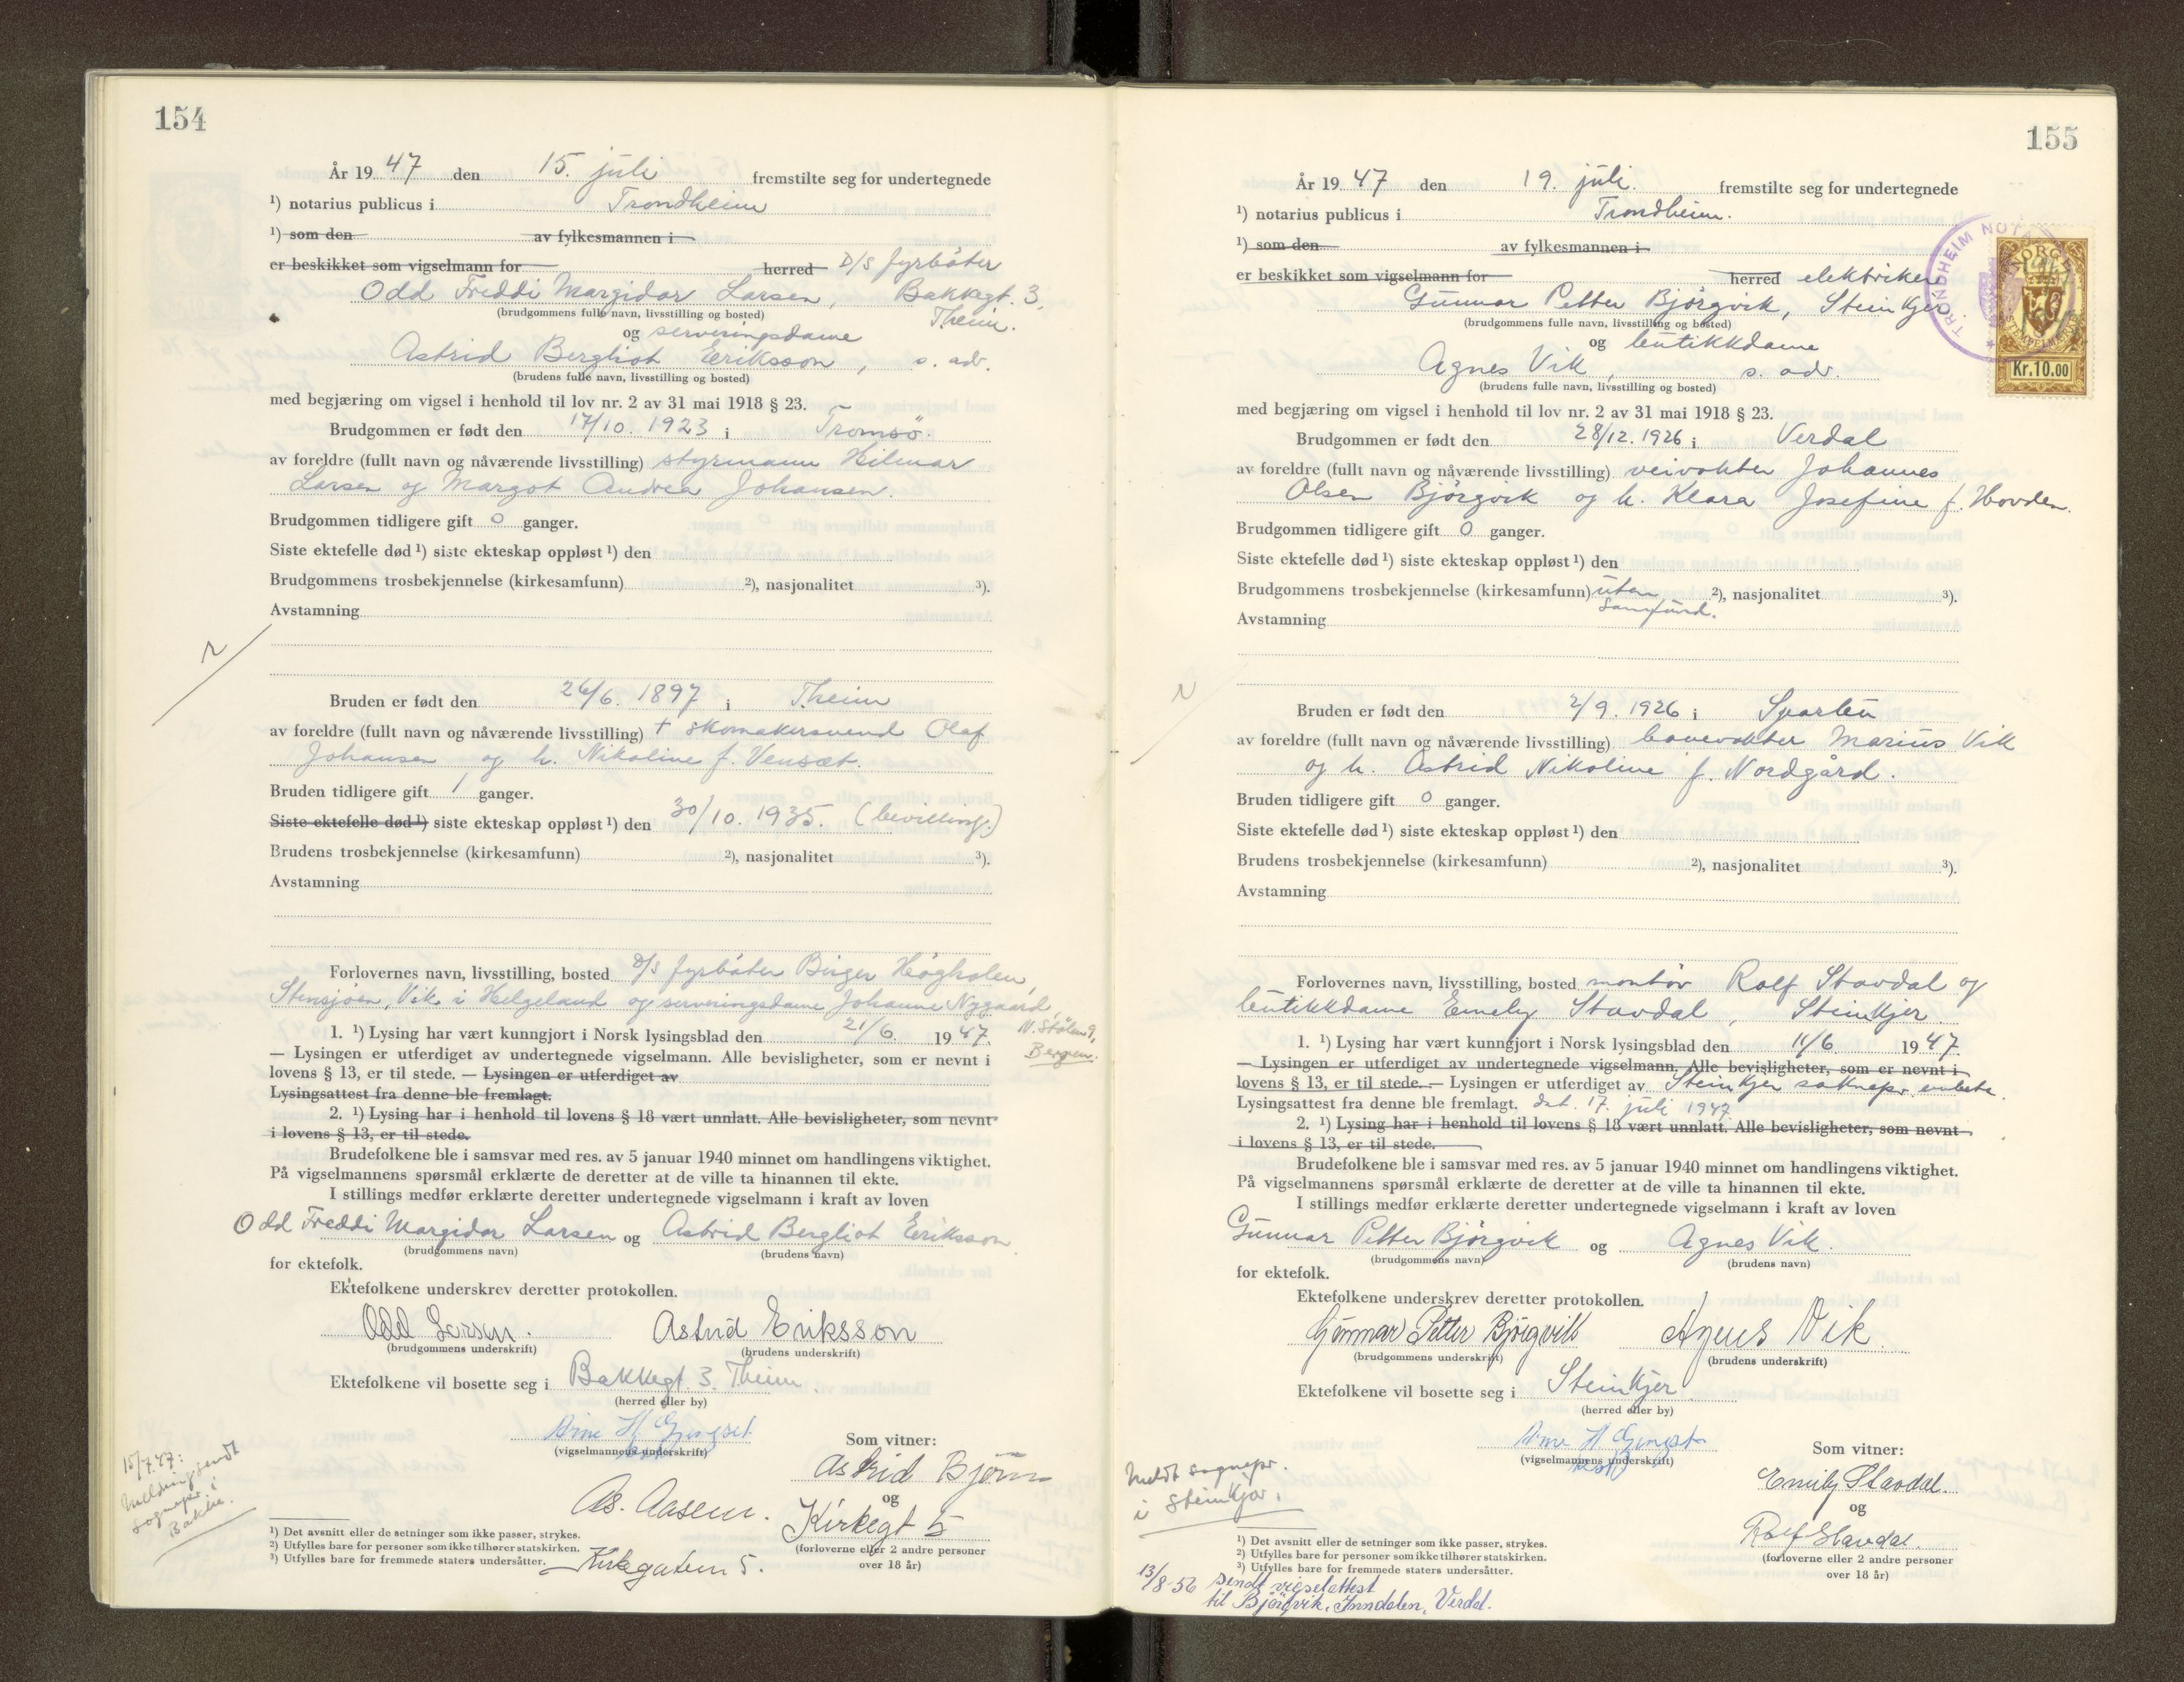 154
År 19 47 den 15. juli fremstilte seg for undertegnede
¹) notarius publicus i Trondheim
¹) som den av fylkesmannen i
er beskikket som vigselmann for herred D/S fyrböter
Odd Freddi Margidar Larsen, Bakkegt. 3,
(brudgommens fulle navn, livsstilling og bosted) Theim.
og serveringsdame
Astrid Bergliot Eriksson, s. adr.
(brudens fulle navn, livsstilling og bosted)
med begjæring om vigsel i henhold til lov nr. 2 av 31 mai 1918 § 23.
Brudgommen er født den 17/10. 1923 i Tromsö.
av foreldre (fullt navn og nåværende livsstilling) styrmann Hilmar
Larsen og Margot Andrea Johansen.
Brudgommen tidligere gift 0 ganger.
Siste ektefelle død ¹) siste ekteskap oppløst ¹) den
Brudgommens trosbekjennelse (kirkesamfunn) ²), nasjonalitet ³).
Avstamning
Bruden er født den 26/6. 1897 i Theim
av foreldre (fullt navn og nåværende livsstilling) + skomakersvend Olaf
Johansen og h. Nikoline f. Vensæt.
Bruden tidligere gift 1 ganger.
Siste ektefelle død ¹) siste ekteskap oppløst ¹) den 30/10. 1935. (bevilling.)
Brudens trosbekjennelse (kirkesamfunn) ²), nasjonalitet ³).
Avstamning
Forlovernes navn, livsstilling, bosted D/S fyrböter Birger Högholen,
Stensjøen, Vik i Helgeland og serveringsdame Johanne Nygaard,
N. Stölen 9, Bergen.
1. ¹) Lysing har vært kunngjort i Norsk lysingsblad den 21/6. 19 47.
— Lysingen er utferdiget av undertegnede vigselmann. Alle bevisligheter, som er nevnt i
lovens § 13, er til stede. — Lysingen er utferdiget av
Lysingsattest fra denne ble fremlagt.
2. ¹) Lysing har i henhold til lovens § 18 vært unnlatt. Alle bevisligheter, som nevnt
i lovens § 13, er til stede.
Brudefolkene ble i samsvar med res. av 5 januar 1940 minnet om handlingens viktighet.
På vigselmannens spørsmål erklærte de deretter at de ville ta hinannen til ekte.
I stillings medfør erklærte deretter undertegnede vigselmann i kraft av loven
Odd Freddi Margidar Larsen og Astrid Bergliot Eriksson
(brudgommens navn) (brudens navn)
for ektefolk.
Ektefolkene underskrev deretter protokollen.
Odd Larsen. Astrid Eriksson
(brudgommens underskrift) (brudens underskrift)
Ektefolkene vil bosette seg i Bakkegt. 3. Theim.
(herred eller by)
(vigselmannens underskrift)
Som vitner:
Astrid Bjørn
As. Aasen. og
Kirkegt 5
Kirkegaten 5.
(forloverne eller 2 andre personer
over 18 år)
15/7.47:
melding sendt
sognepr. i
Bakke.
¹) Det avsnitt eller de setninger som ikke passer, strykes.
²) Utfylles bare for personer som ikke tilhører statskirken.
³) Utfylles bare for fremmede staters undersåtter.
155
År 19 47 den 19. juli. fremstilte seg for undertegnede
¹) notarius publicus i Trondheim.
¹) som den av fylkesmannen i
er beskikket som vigselmann for herred elektriker
Gunnar Petter Bjørgvik, Steinkjer.
(brudgommens fulle navn, livsstilling og bosted)
og butikkdame
Agnes Vik, s. adr.
(brudens fulle navn, livsstilling og bosted)
TRONDHEIM NOT
NORGE
STEMPELMERKE
Kr.10.00
med begjæring om vigsel i henhold til lov nr. 2 av 31 mai 1918 § 23.
Brudgommen er født den 28/12. 1926 i Verdal
av foreldre (fullt navn og nåværende livsstilling) veivokter Johannes
Olsen Bjørgvik og h. Klara Josefine f. Hovden.
Brudgommen tidligere gift 0 ganger.
Siste ektefelle død ¹) siste ekteskap oppløst ¹) den
Brudgommens trosbekjennelse (kirkesamfunn) uten samfund. ²), nasjonalitet ³).
Avstamning
Bruden er født den 2/9. 1926 i Sparbu
av foreldre (fullt navn og nåværende livsstilling) banevokter Marius Vik
og h. Astrid Nikoline f. Nordgård.
Bruden tidligere gift 0 ganger.
Siste ektefelle død ¹) siste ekteskap oppløst ¹) den
Brudens trosbekjennelse (kirkesamfunn) ²), nasjonalitet ³).
Avstamning
Forlovernes navn, livsstilling, bosted montör Rolf Stavdal og
butikkdame Emely Stavdal, Steinkjer.
1. ¹) Lysing har vært kunngjort i Norsk lysingsblad den 11/6. 19 47.
— Lysingen er utferdiget av undertegnede vigselmann. Alle bevisligheter, som er nevnt i
lovens § 13, er til stede. — Lysingen er utferdiget av Steinkjer soknepr. embete.
Lysingsattest fra denne ble fremlagt. dat. 17. juli 1947.
2. ¹) Lysing har i henhold til lovens § 18 vært unnlatt. Alle bevisligheter, som nevnt
i lovens § 13, er til stede.
Brudefolkene ble i samsvar med res. av 5 januar 1940 minnet om handlingens viktighet.
På vigselmannens spørsmål erklærte de deretter at de ville ta hinannen til ekte.
I stillings medfør erklærte deretter undertegnede vigselmann i kraft av loven
Gunnar Petter Bjørgvik og Agnes Vik.
(brudgommens navn) (brudens navn)
for ektefolk.
Ektefolkene underskrev deretter protokollen.
Gunnar Petter Bjørgvik Agnes Vik.
(brudgommens underskrift) (brudens underskrift)
Ektefolkene vil bosette seg i Steinkjer
(herred eller by)
(vigselmannens underskrift)
Som vitner:
Emily Stavdal.
og
Rolf Stavdal.
(forloverne eller 2 andre personer
over 18 år)
Meldt sognepr.
i Steinkjer.
¹) Det avsnitt eller de setninger som ikke passer, strykes.
²) Utfylles bare for personer som ikke tilhører statskirken.
³) Utfylles bare for fremmede staters undersåtter.
13/8-56 sendt vigselattest
til Bjørgvik, Inndalen, Verdal.